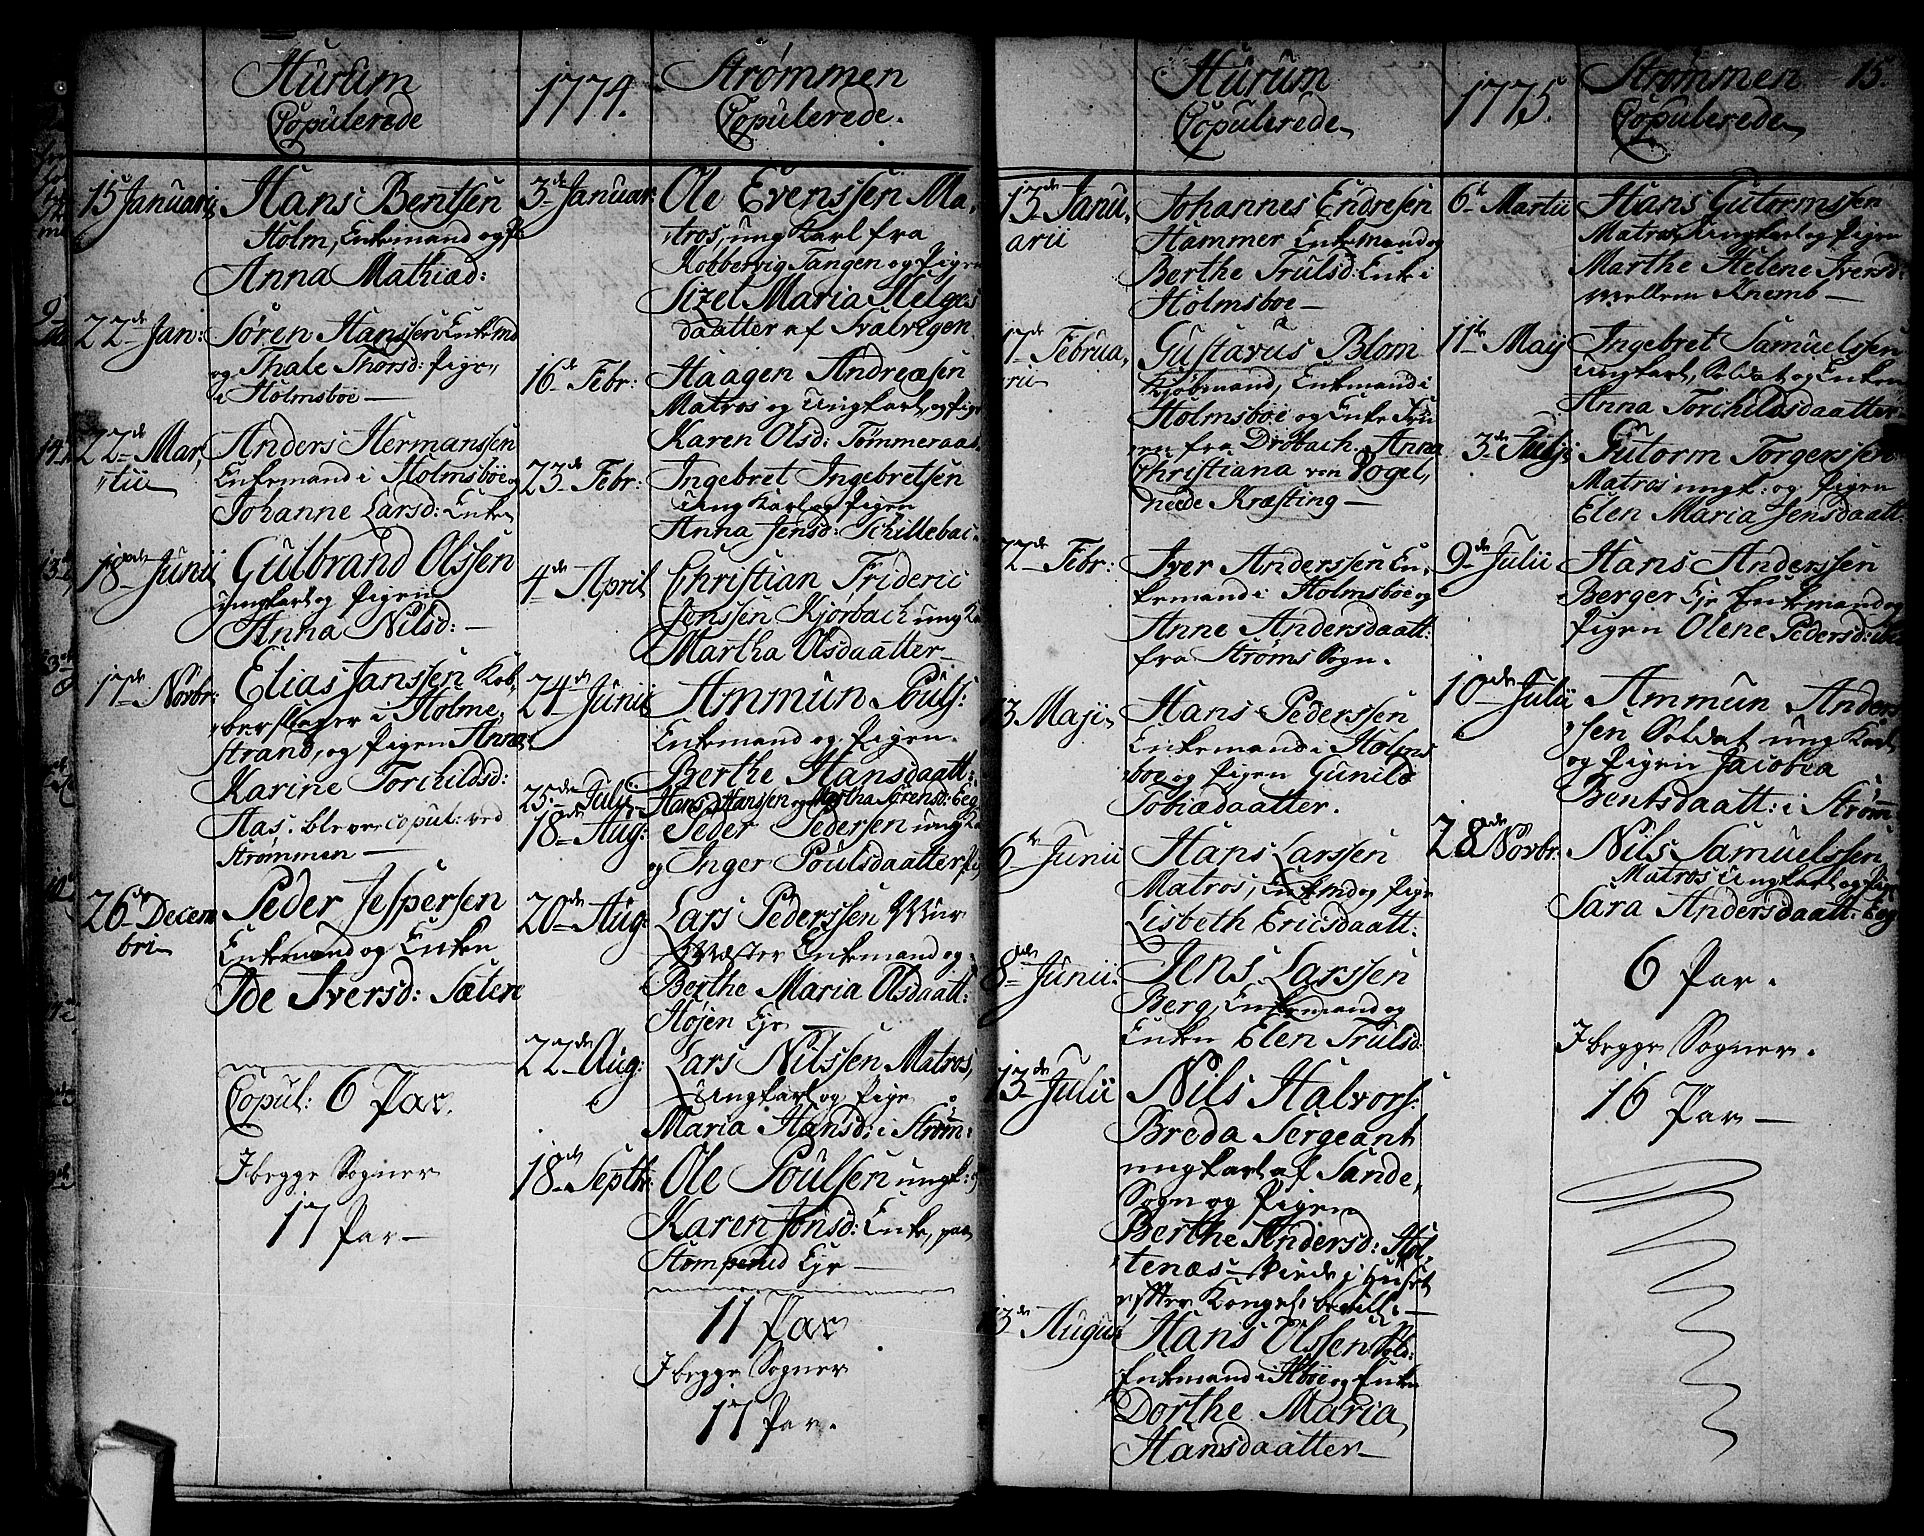 Hurum
Copulerede
1774.
Strømmen
Copulerede.
15 Januarii
Hans Bentsen
Holm, Enkemand og Pi
Anna Mathiad:
22de Jan:
Søren Hanssen Enkemd
og Thale Thorsd: Pige
i Holmsboe —
22de Mar,
tii
Anders Hermanssen
Enkemand i Holmsboe og
Johanne Larsd: Enke
18de Junii
Gulbrand Olssen
ungkarl og Pigen
Anna Nilsd: —
17de Novbr:
Elias Janssen Kob,
berslager i Holme,
strand, og Pigen Anna
Karine Torchildsd:
Aas. bleve copul: ved
Strømmen —
26de Decem
bri
Peder Jespersen
Enkemand og Enken
Ide Iversd: Sæter
Copul: 6 Par.
I begge Sogner
17 Par —
3de Januar:
Ole Evenssen Ma,
tros, ung Karl fra
Kobbervig Tangen og Pigen
Sizel Maria Helges
daatter af Svalvigen.
16de Febr:
Haagen Andreæsen
Matros og Ungkarl, og Pige
Karen Olsd: Tømmeraas
23de Febr:
Ingebret Ingebretsen
Ung Karl og Pigen
Anna Jensd: Schillebac
4de April
Christian Frideric
Jonssen Kjørbach ung Ka
Martha Olsdaatter
24de Junii
Ammun Pouls:
Enkemand og Pigen.
Berthe Hansdaatt:
25de Julii
Hans Hanssen og Martha Sørensd: Eeg
18de Aug:
Peder Pedersen ung Ka
og Inger Poulsdaatter Pi
20de Aug:
Lars Pederssen Mur
Mæster Enkemand og
Berthe Maria Olsdaatt:
Højen Eje —
22de Aug:
Lars Nilssen Matros,
Ungkarl og Pige
Maria Hansd: i Strøm:
18de Septbr:
Ole Poulssen ungk: og
Karen Jonsd: Enke, paa
Strømperud Eje —
11 Par
I begge Sogner
17 Par.
Hurum
Copulerede
1775.
Strømmen
Copulerede
15.
13de Janu,
arii
Johannes Endresen
Hammer Enkemand og
Berthe Trulsd: Enke i
Holmsboe —
17de Februa,
rii
Gustavus Blom
Kjøbmand, Enkemand i
Holmsboe og Enke Fru
en fra Drøbach. Anna
Christiana von Vogel,
neede Kræfting —
22de Febr:
Iver Anderssen En,
kemand i Holmsboe og
Anne Andersdaatt:
fra Strøms Sogn.
13 Maji
Hans Pederssen
Enkemand i Holms
boe og Pigen Gunild
Tobiædaatter.
6te Junii
Hans Larssen
Matros, Enkemd og Pige
Lisbeth Ericsdaatt:
8de Junii:
Jens Larssen
Berg, Enkemand og
Enken Elen Trulsd:
13de Julii
Nils Halvors:
Breda Sergeant
ungkarl af Sande,
Sogn og Pigen
Berthe Andersd: Hol,
tenæs — Viede i Huset
efter Kongel: bevill: —
13de Augus
Hans Olssen Sold:
Enkemand i Hboe og Enke
Dorthe Maria
Hansdaatter —
6te Martii
Hans Gutormssen
Matros, Ungkarl og Pigen
Marthe Helene Iversd:
mellem Knemb —
11te Maij
Ingebret Samuelssen
Ungkarl, Soldat og Enken
Anna Torchildsdaatter
3de Julij
Gutorm Torgerssen
Matros ungk: og Pigen
Elen Maria Jensdaatt:
9de Julii
Hans Anderssen
Berger Eje Enkemand og
Pigen Olene Pedersd: ibid
10de Julii
Ammun Anders
sen Soldat ung Karl
og Pigen Jacobia
Bentsdaatt: i Strømm
28de Novbr:
Nils Samuelssen
Matros Ungkarl og Pige
Sara Andersdaatt: Eeg
6 Par.
I begge Sogner.
16 Par —